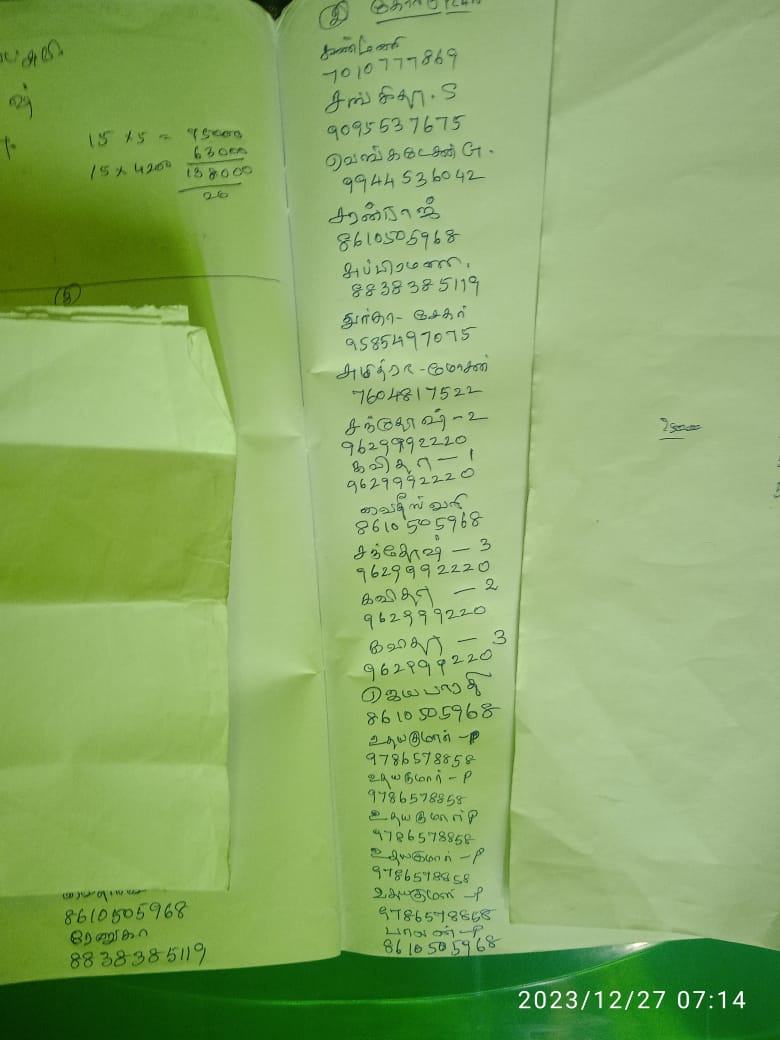 15 x 5 = 75000
63000
15 x 4200 138000
26
(5)
8610505968
ரேணுகா
8838385119
கண்மணி
7010777869
சங்கீதா. S
9095537675
வெங்கடேசன் G.
9944536042
சரண்ராஜ்
8610505968
சுப்பிரமணி.
8838385119
துர்கா - சேகர்
9585497075
சுமித்ரா - மோகன்
7604817522
சந்தோஷ் - 2
9629992220
கவிதா - 1
9629992220
வைதீஸ்வரி
8610505968
சந்தோஷ் - 3
9629992220
கவிதா - 2
962999220
கவிதா - 3
962999220
ஜெயபாரதி
8610505968
உதயகுமார் - P
9786578858
உதயகுமார் - P
9786578858
உதயகுமார் P
9786578858
உதயகுமார் - P
9786578858
உதயகுமார் - P
9786578858
பாலன் - P
8610505968
2023/12/27 07:14